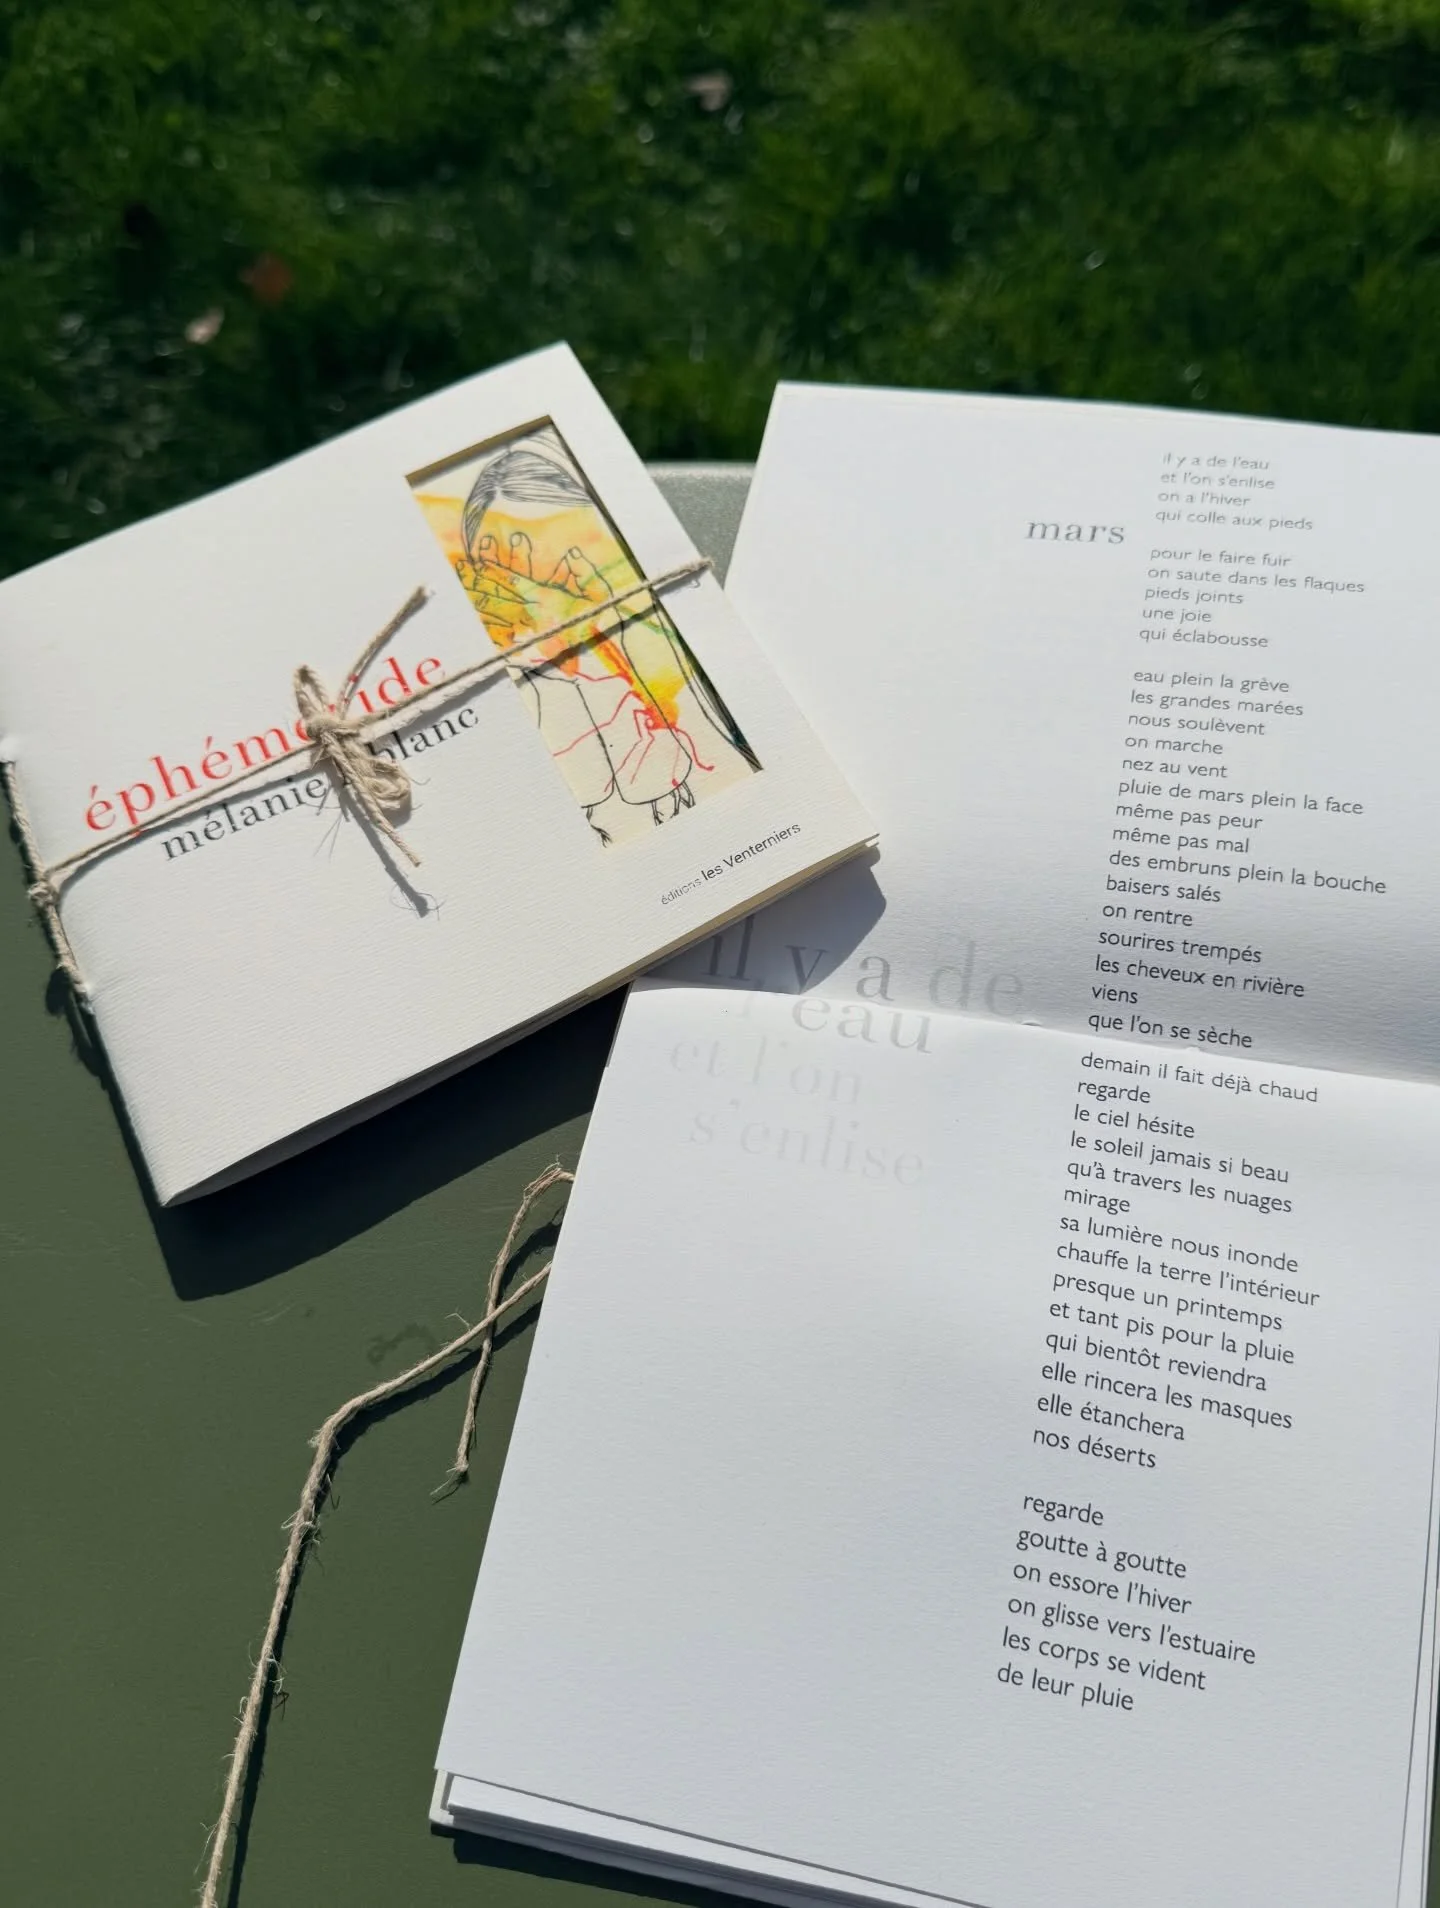 éphéméride
mélanie leblanc
éditions les Venterniers
mars
il y a de l'eau
et l'on s'enlise
on a l'hiver
qui colle aux pieds
pour le faire fuir
on saute dans les flaques
pieds joints
une joie
qui éclabousse
eau plein la grève
les grandes marées
nous soulèvent
on marche
nez au vent
pluie de mars plein la face
même pas peur
même pas mal
des embruns plein la bouche
baisers salés
on rentre
sourires trempés
les cheveux en rivière
viens
que l'on se sèche
demain il fait déjà chaud
regarde
le ciel hésite
le soleil jamais si beau
qu'à travers les nuages
mirage
sa lumière nous inonde
chauffe la terre l'intérieur
presque un printemps
et tant pis pour la pluie
qui bientôt reviendra
elle rincera les masques
elle étanchera
nos déserts
regarde
goutte à goutte
on essore l'hiver
on glisse vers l'estuaire
les corps se vident
de leur pluie
il y a de
l'eau
et l'on
s'enlise